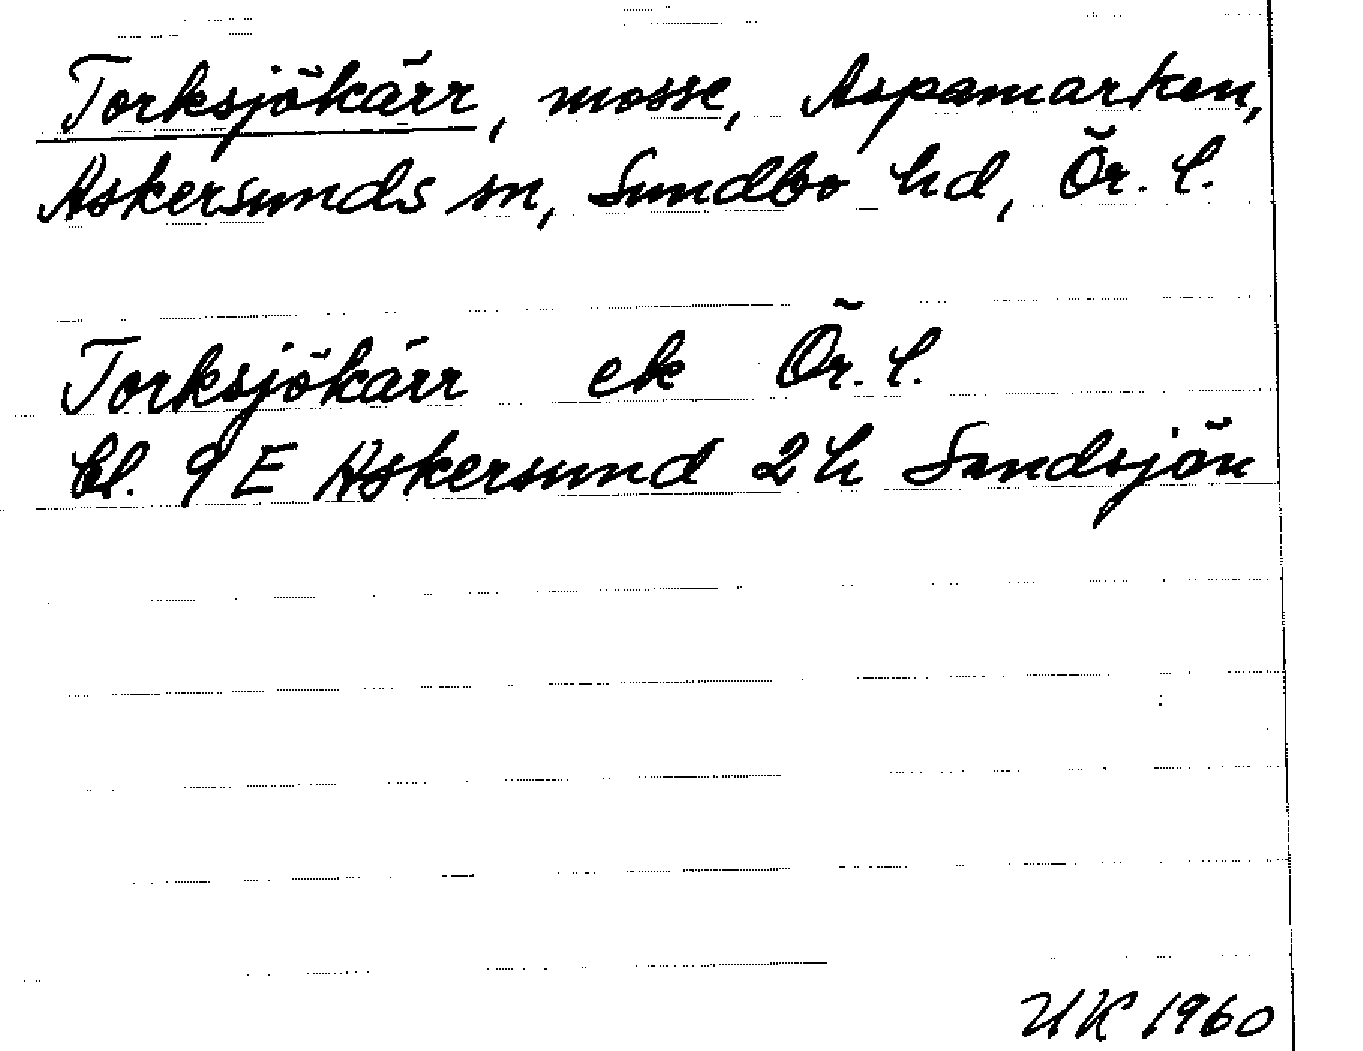 Torksjökärr, mosse, Aspamarken,
Askersunds sn, Sundbo hd, Ör. l.
Torksjökärr ek Ör. l.
bl. 9 E Askersund 2 h Sundsjön
UK 1960